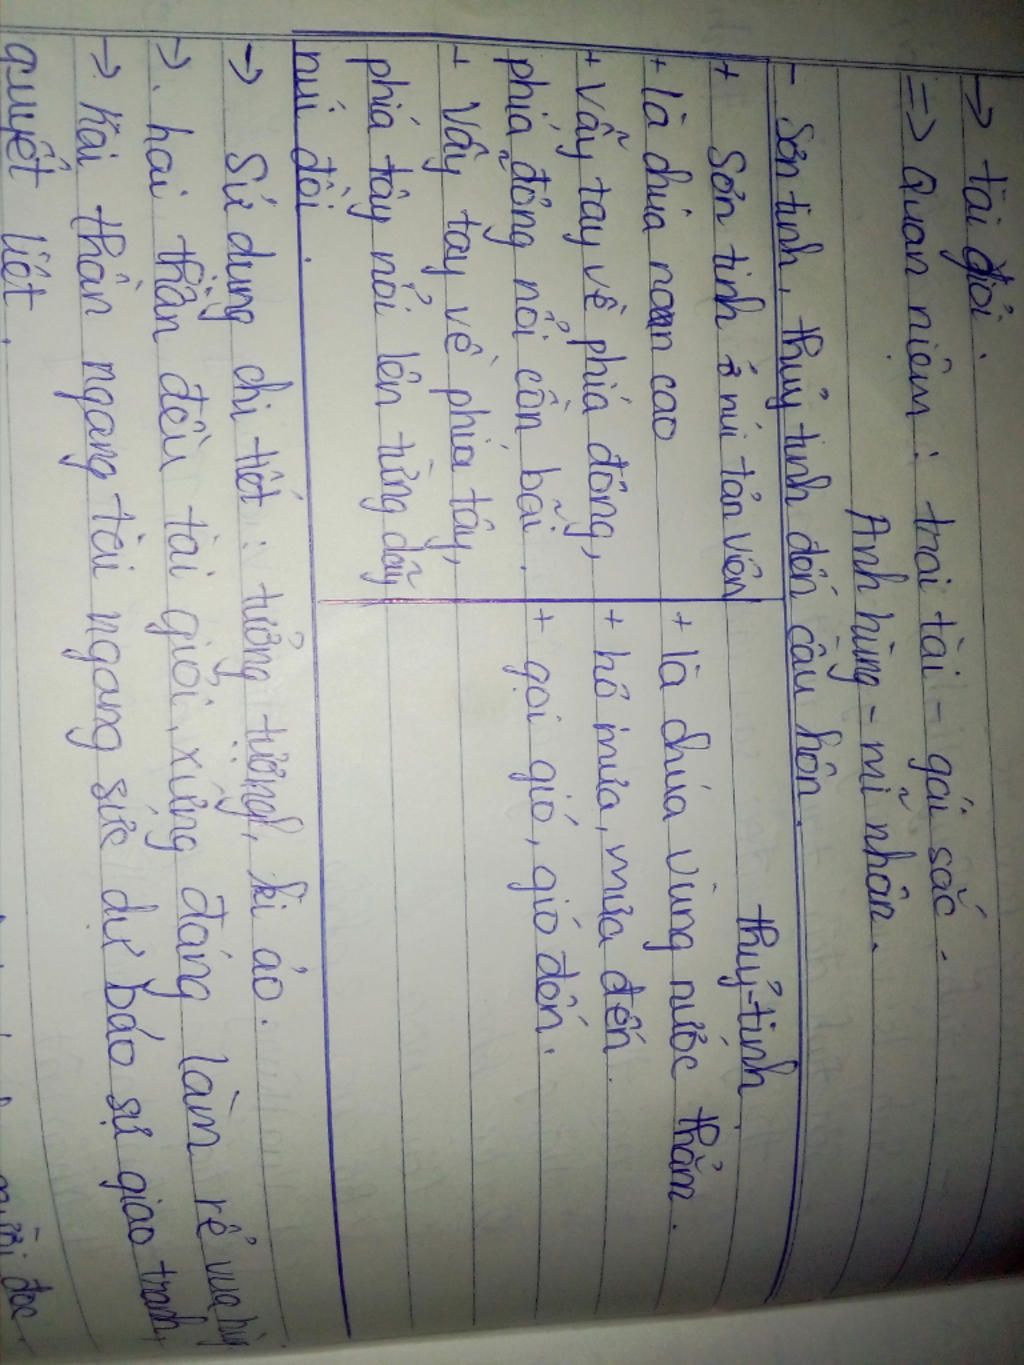 → tài giỏi.
⇒ Quan niệm : trai tài - gái sắc -
Anh hùng - mĩ nhân.
- Sơn tinh, thuỷ tinh đến cầu hôn.
+ Sơn tinh ở núi tản viên
+ là chúa non cao
+ Vẫy tay về phía đông,
phía đông nổi cồn bãi.
+ Vẫy tay về phía tây,
phía tây nổi lên từng dãy
núi đồi.
thuỷ-tinh
+ là chúa vùng nước thẳm.
+ hô mưa, mưa đến.
+ gọi gió, gió đến.
→ Sử dụng chi tiết : tưởng tượng, kì ảo.
→. hai thần đều tài giỏi, xứng đáng làm rể vua hùng
→ hai thần ngang tài ngang sức dự báo sự giao tranh
quyết liệt.